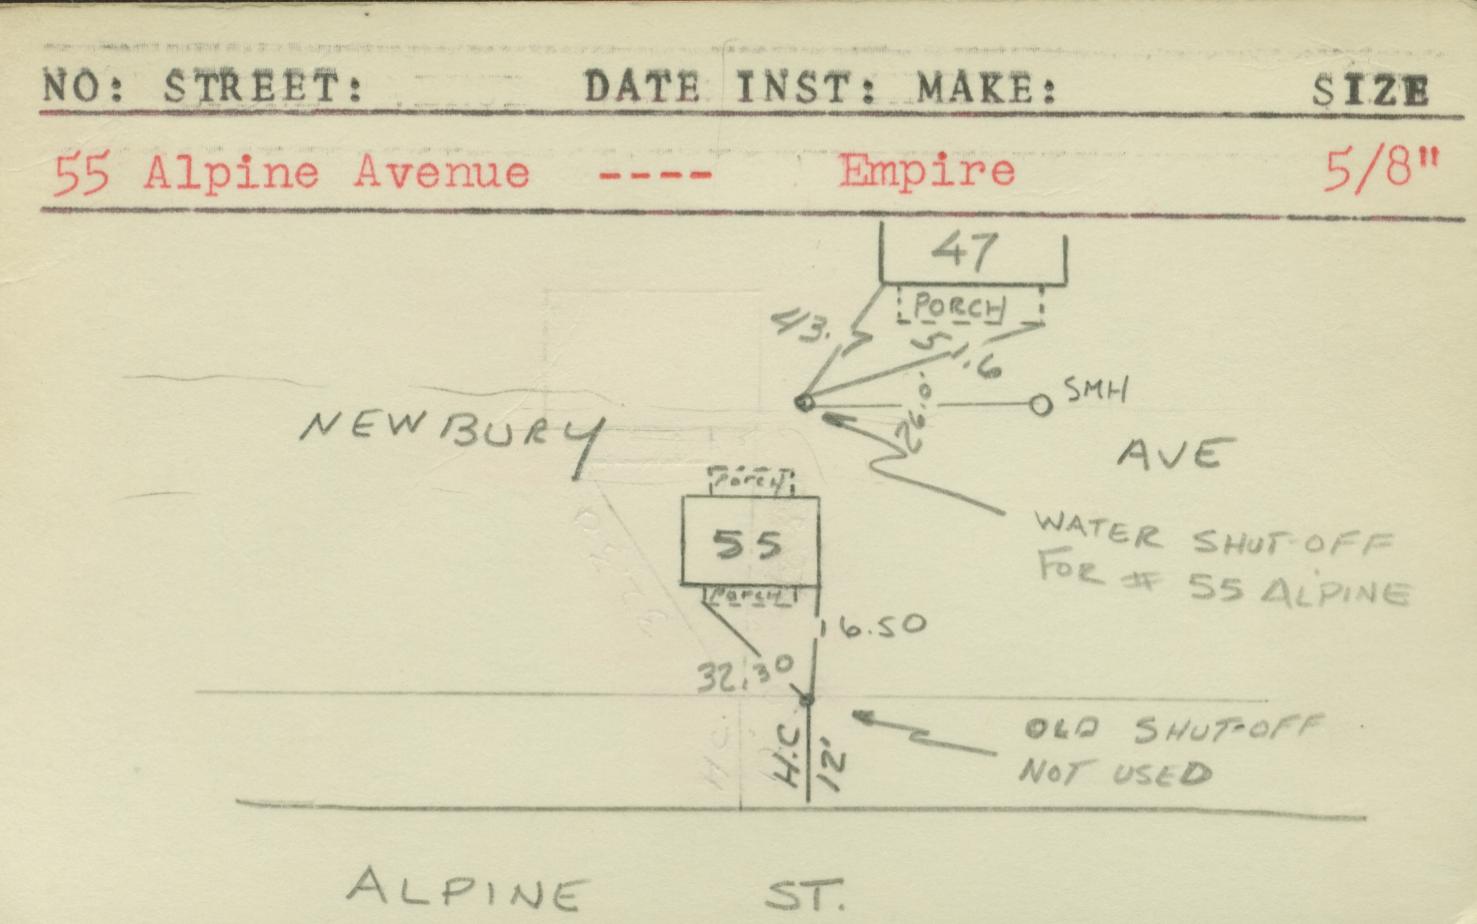 NO: STREET: DATE INST: MAKE: SIZE
55 Alpine Avenue ---- Empire 5/8"
47
PORCH
43.
51.6
SMH
26.0
NEWBURY AVE
PORCH
55
WATER SHUT-OFF
FOR # 55 ALPINE
PORCH
16.50
32.30
H.C 12'
OLD SHUT-OFF
NOT USED
ALPINE ST.